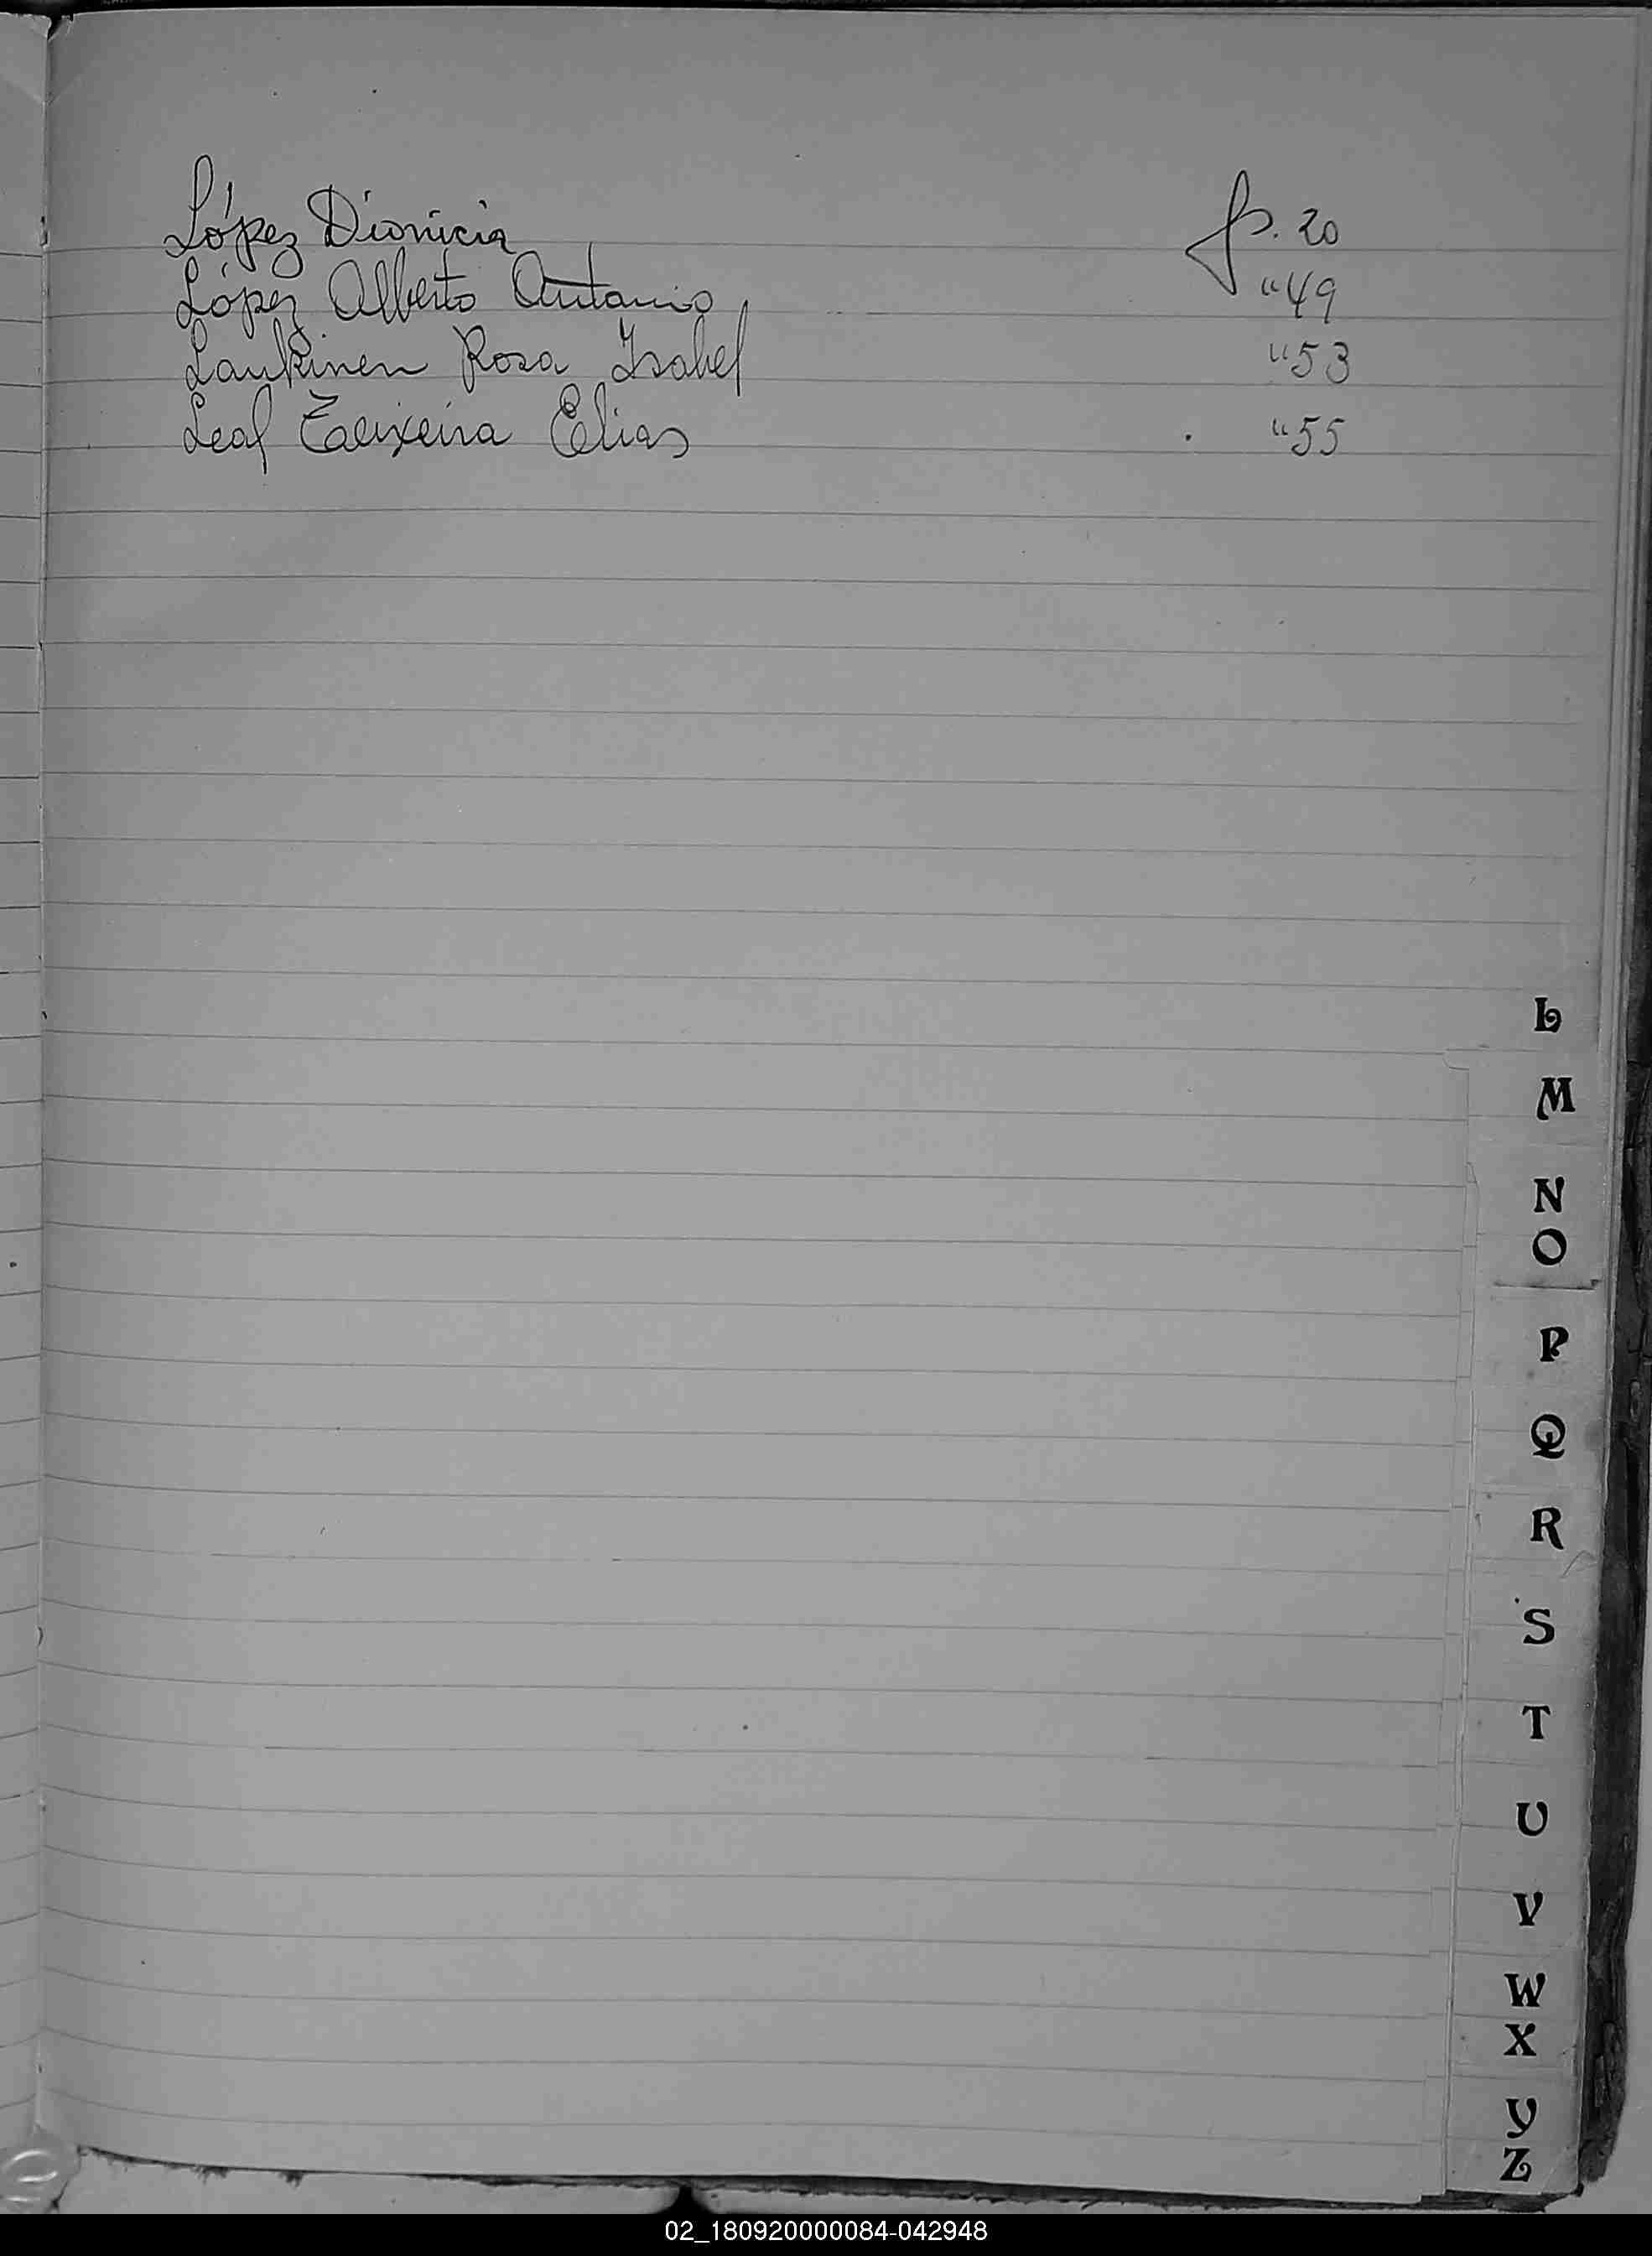 López Dionicia f. 20
López Alberto Antonio " 49
Laukinen Rosa Isabel " 53
Leal Teixeira Elias " 55
L
M
N
O
P
Q
R
S
T
U
V
W
X
Y
Z
02_180920000084-042948